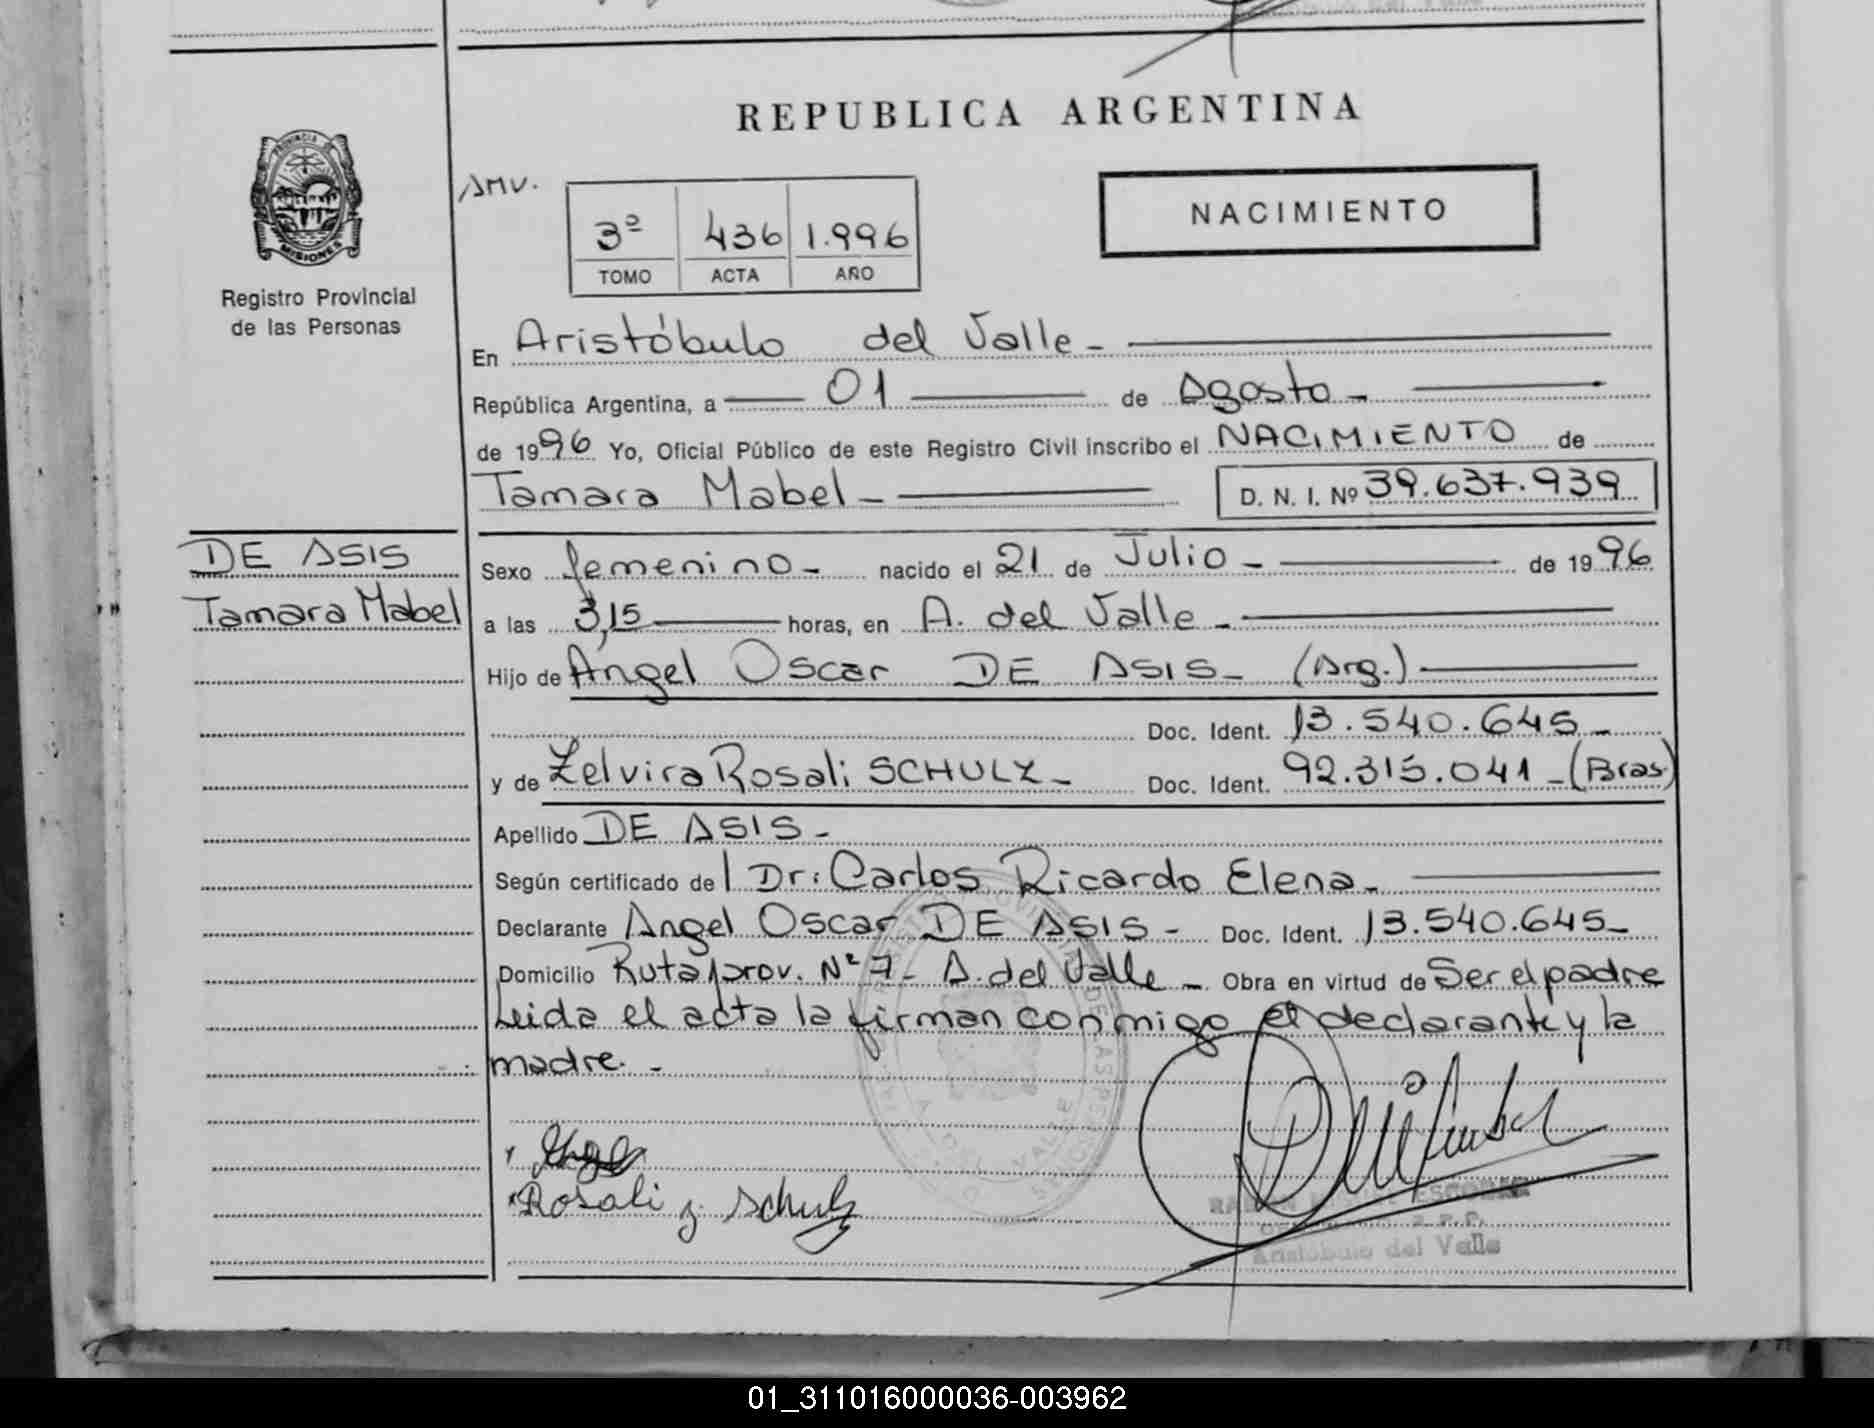 REPUBLICA ARGENTINA
PROVINCIA DE
MISIONES
Registro Provincial
de las Personas
AMV.
3º 436 1.996
TOMO ACTA AÑO
NACIMIENTO
En Aristóbulo del Valle -
República Argentina, a 01 de Agosto -
de 1996 Yo, Oficial Público de este Registro Civil inscribo el NACIMIENTO de
Tamara Mabel - D. N. I. Nº 39.637.939
DE ASIS
Tamara Mabel
Sexo femenino - nacido el 21 de Julio - de 1996
a las 3,15 horas, en A. del Valle -
Hijo de Angel Oscar DE ASIS - (Arg.)
Doc. Ident. 13.540.645 -
y de Zelvira Rosali SCHULZ - Doc. Ident. 92.315.041 - (Bras.)
Apellido DE ASIS -
Según certificado del Dr: Carlos Ricardo Elena -
Declarante Angel Oscar DE ASIS - Doc. Ident. 13.540.645 -
Domicilio Ruta prov. Nº 7 - A. del Valle - Obra en virtud de Ser el padre
Leida el acta la firman conmigo el declarante y la
madre. -
Angel
Rosali z. Schulz
ESCOBAR
Aristóbulo del Valle
01_311016000036-003962